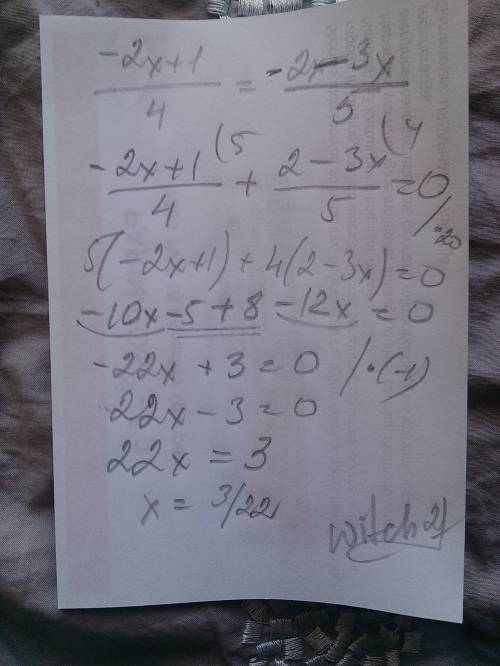 -2x+1/4 = -2x-3x/5
-2x+1/4 (5 + 2-3x/5 (4 = 0 /·20
5(-2x+1) + 4(2-3x) = 0
-10x-5+8-12x = 0
-22x + 3 = 0 /·(-1)
22x - 3 = 0
22x = 3
x = 3/22
witch21